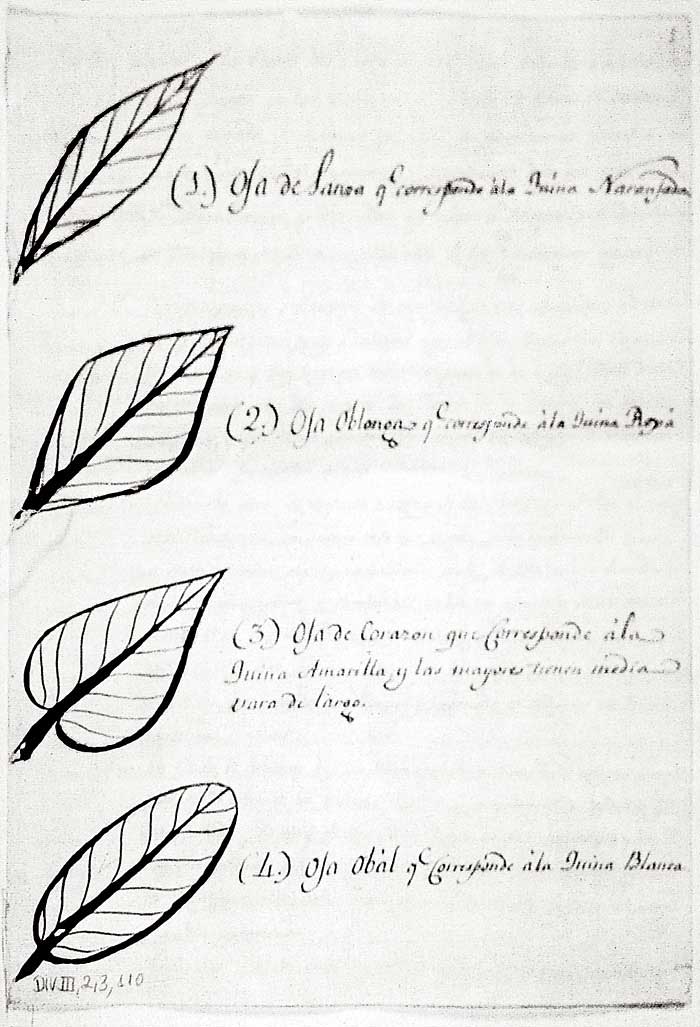 (1.) Oja de Lanza q.e corresponde àla Quina Naranjada
(2.) Oja Oblonga q.e corresponde àla Quina Roja
(3.) Oja de Corazon que Corresponde àla
Quina Amarilla, y las mayores tienen media
vara de largo.
(4.) Oja Obàl q.e Corresponde àla Quina Blanca
DIV.III,2,3,110